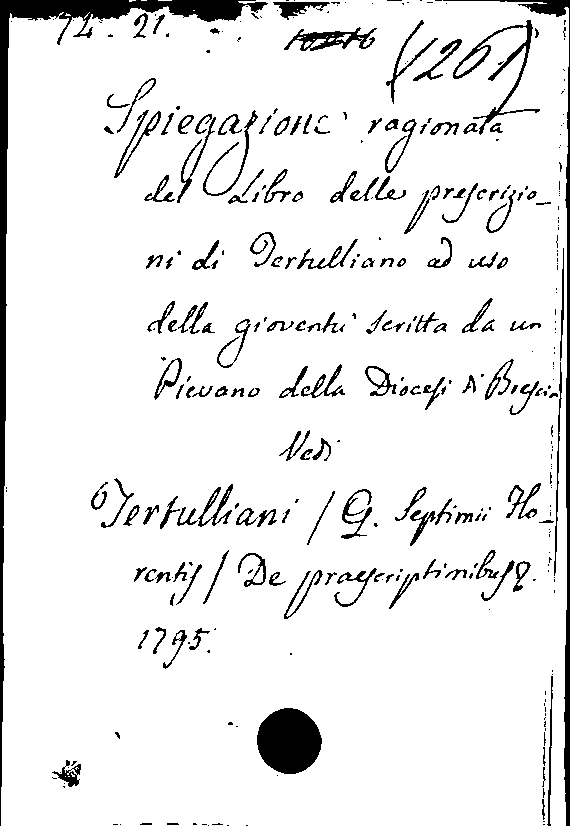 72. 21.
(1261)
Spiegazione ragionata
del Libro delle prescrizio-
ni di Tertulliano ad uso
della gioventù scritta da un
Pievano della Diocesi di Brescia
Vedi
Tertulliani / Q. Septimii Flo-
rentis / De praescriptinibus
1795.